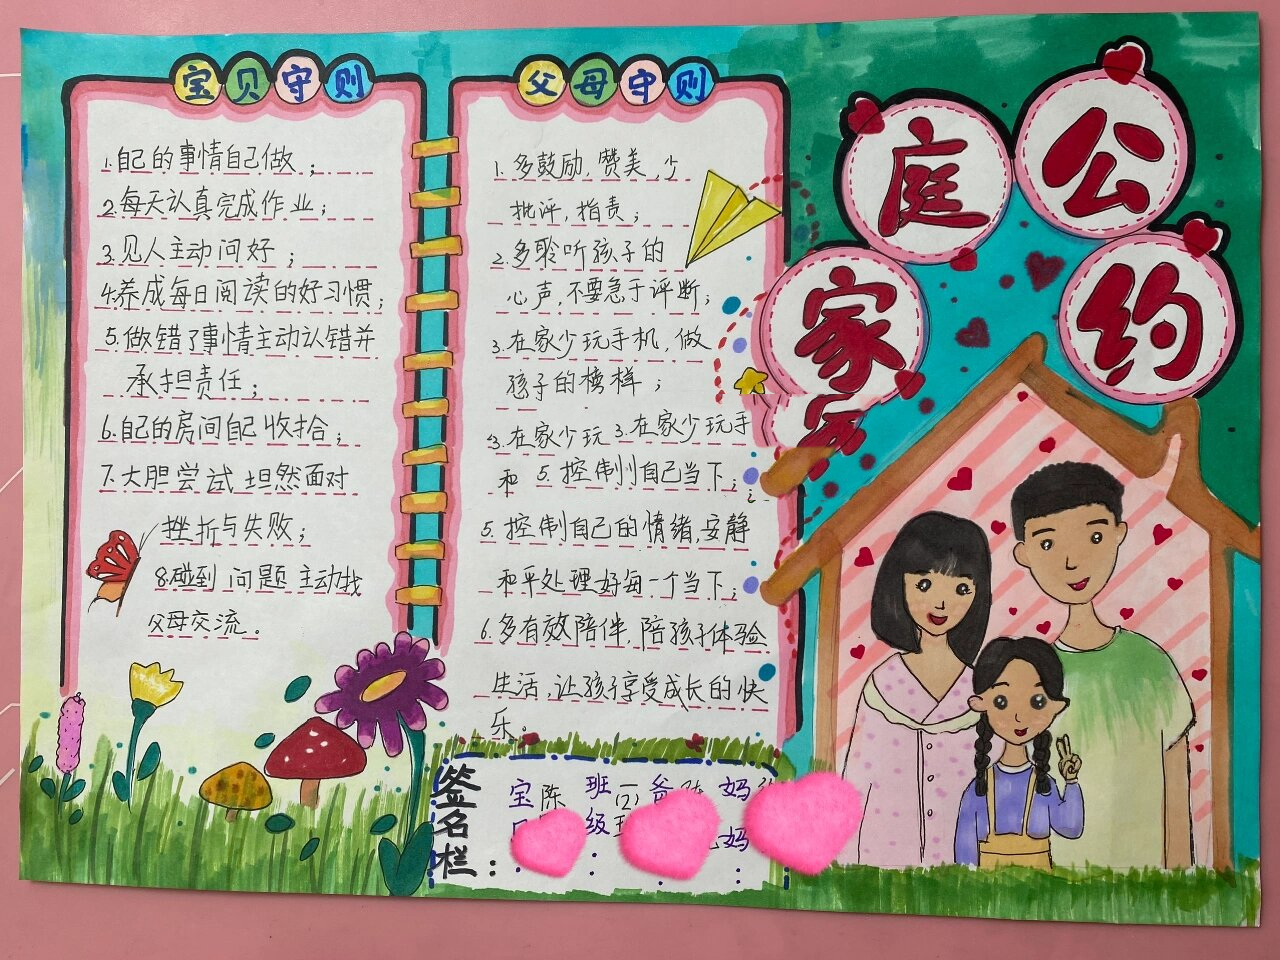 家庭公约
宝贝守则
1.自己的事情自己做；
2.每天认真完成作业；
3.见人主动问好；
4.养成每日阅读的好习惯；
5.做错了事情主动认错并
承担责任；
6.自己的房间自己收拾；
7.大胆尝试坦然面对
挫折与失败；
8.碰到问题主动找
父母交流。
父母守则
1.多鼓励，赞美，少
批评，指责；
2.多聆听孩子的
心声，不要急于评断；
3.在家少玩手机，做
孩子的榜样；
3.在家少玩 3.在家少玩手
和 5.控制自己当下；
5.控制自己的情绪，安静
和平处理好每一个当下；
6.多有效陪伴，陪孩子体验
生活，让孩子享受成长的快
乐。
签名栏：
宝 陈 班 一 爸 妈
级 妈
(2)